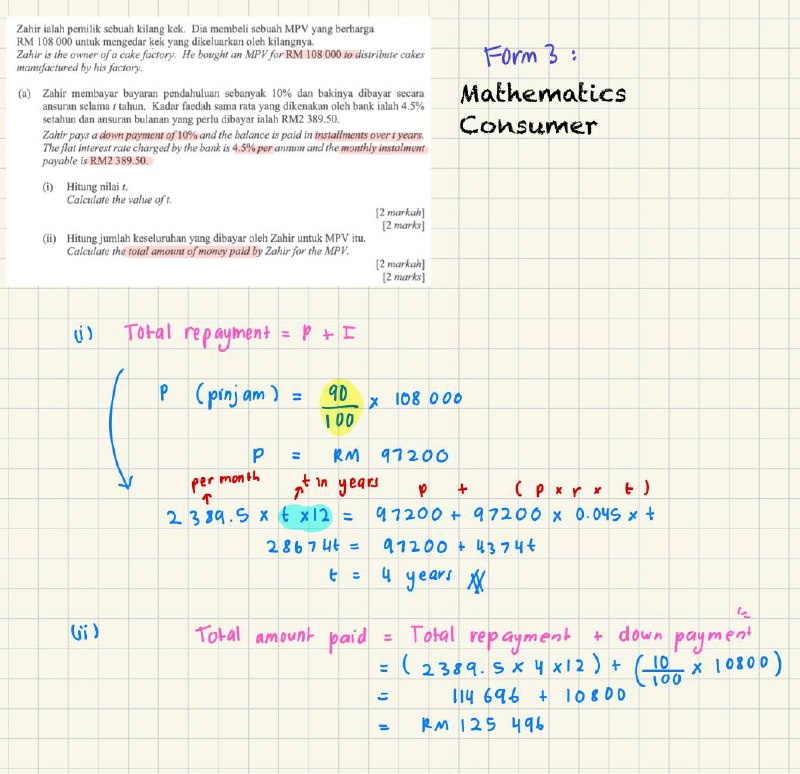 Zahir ialah pemilik sebuah kilang kek. Dia membeli sebuah MPV yang berharga
RM 108 000 untuk mengedar kek yang dikeluarkan oleh kilangnya.
Zahir is the owner of a cake factory. He bought an MPV for RM 108 000 to distribute cakes
manufactured by his factory.
(a) Zahir membayar bayaran pendahuluan sebanyak 10% dan bakinya dibayar secara
ansuran selama t tahun. Kadar faedah sama rata yang dikenakan oleh bank ialah 4.5%
setahun dan ansuran bulanan yang perlu dibayar ialah RM2 389.50.
Zahir pays a down payment of 10% and the balance is paid in installments over t years.
The flat interest rate charged by the bank is 4.5% per annum and the monthly instalment
payable is RM2 389.50.
(i) Hitung nilai t.
Calculate the value of t.
[2 markah]
[2 marks]
(ii) Hitung jumlah keseluruhan yang dibayar oleh Zahir untuk MPV itu.
Calculate the total amount of money paid by Zahir for the MPV.
[2 markah]
[2 marks]
Form 3 :
Mathematics
Consumer
(i) Total repayment = P + I
P (pinjam) = 90/100 × 108 000
P = RM 97200
per month t in years P + ( P × r × t )
2389.5 × t ×12 = 97200 + 97200 × 0.045 × t
28674t = 97200 + 4374t
t = 4 years
(ii) Total amount paid = Total repayment + down payment
= ( 2389.5 × 4 ×12 ) + ( 10/100 × 10800 )
= 114 696 + 10800
= RM 125 496